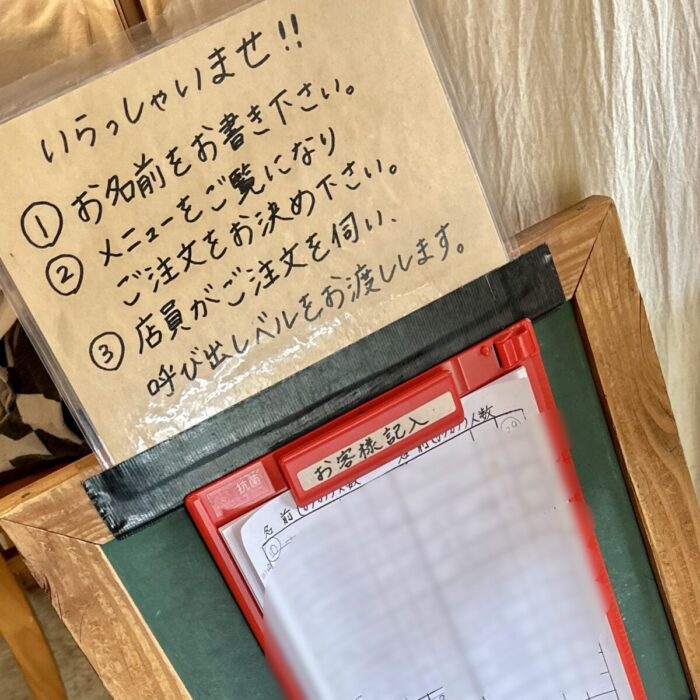 いらっしゃいませ!!
① お名前をお書き下さい。
② メニューをご覧になり
ご注文をお決め下さい。
③ 店員がご注文を伺い、
呼び出しベルをお渡しします。
お客様記入
抗菌
名前(カナ) 人数 名前(カナ) 人数